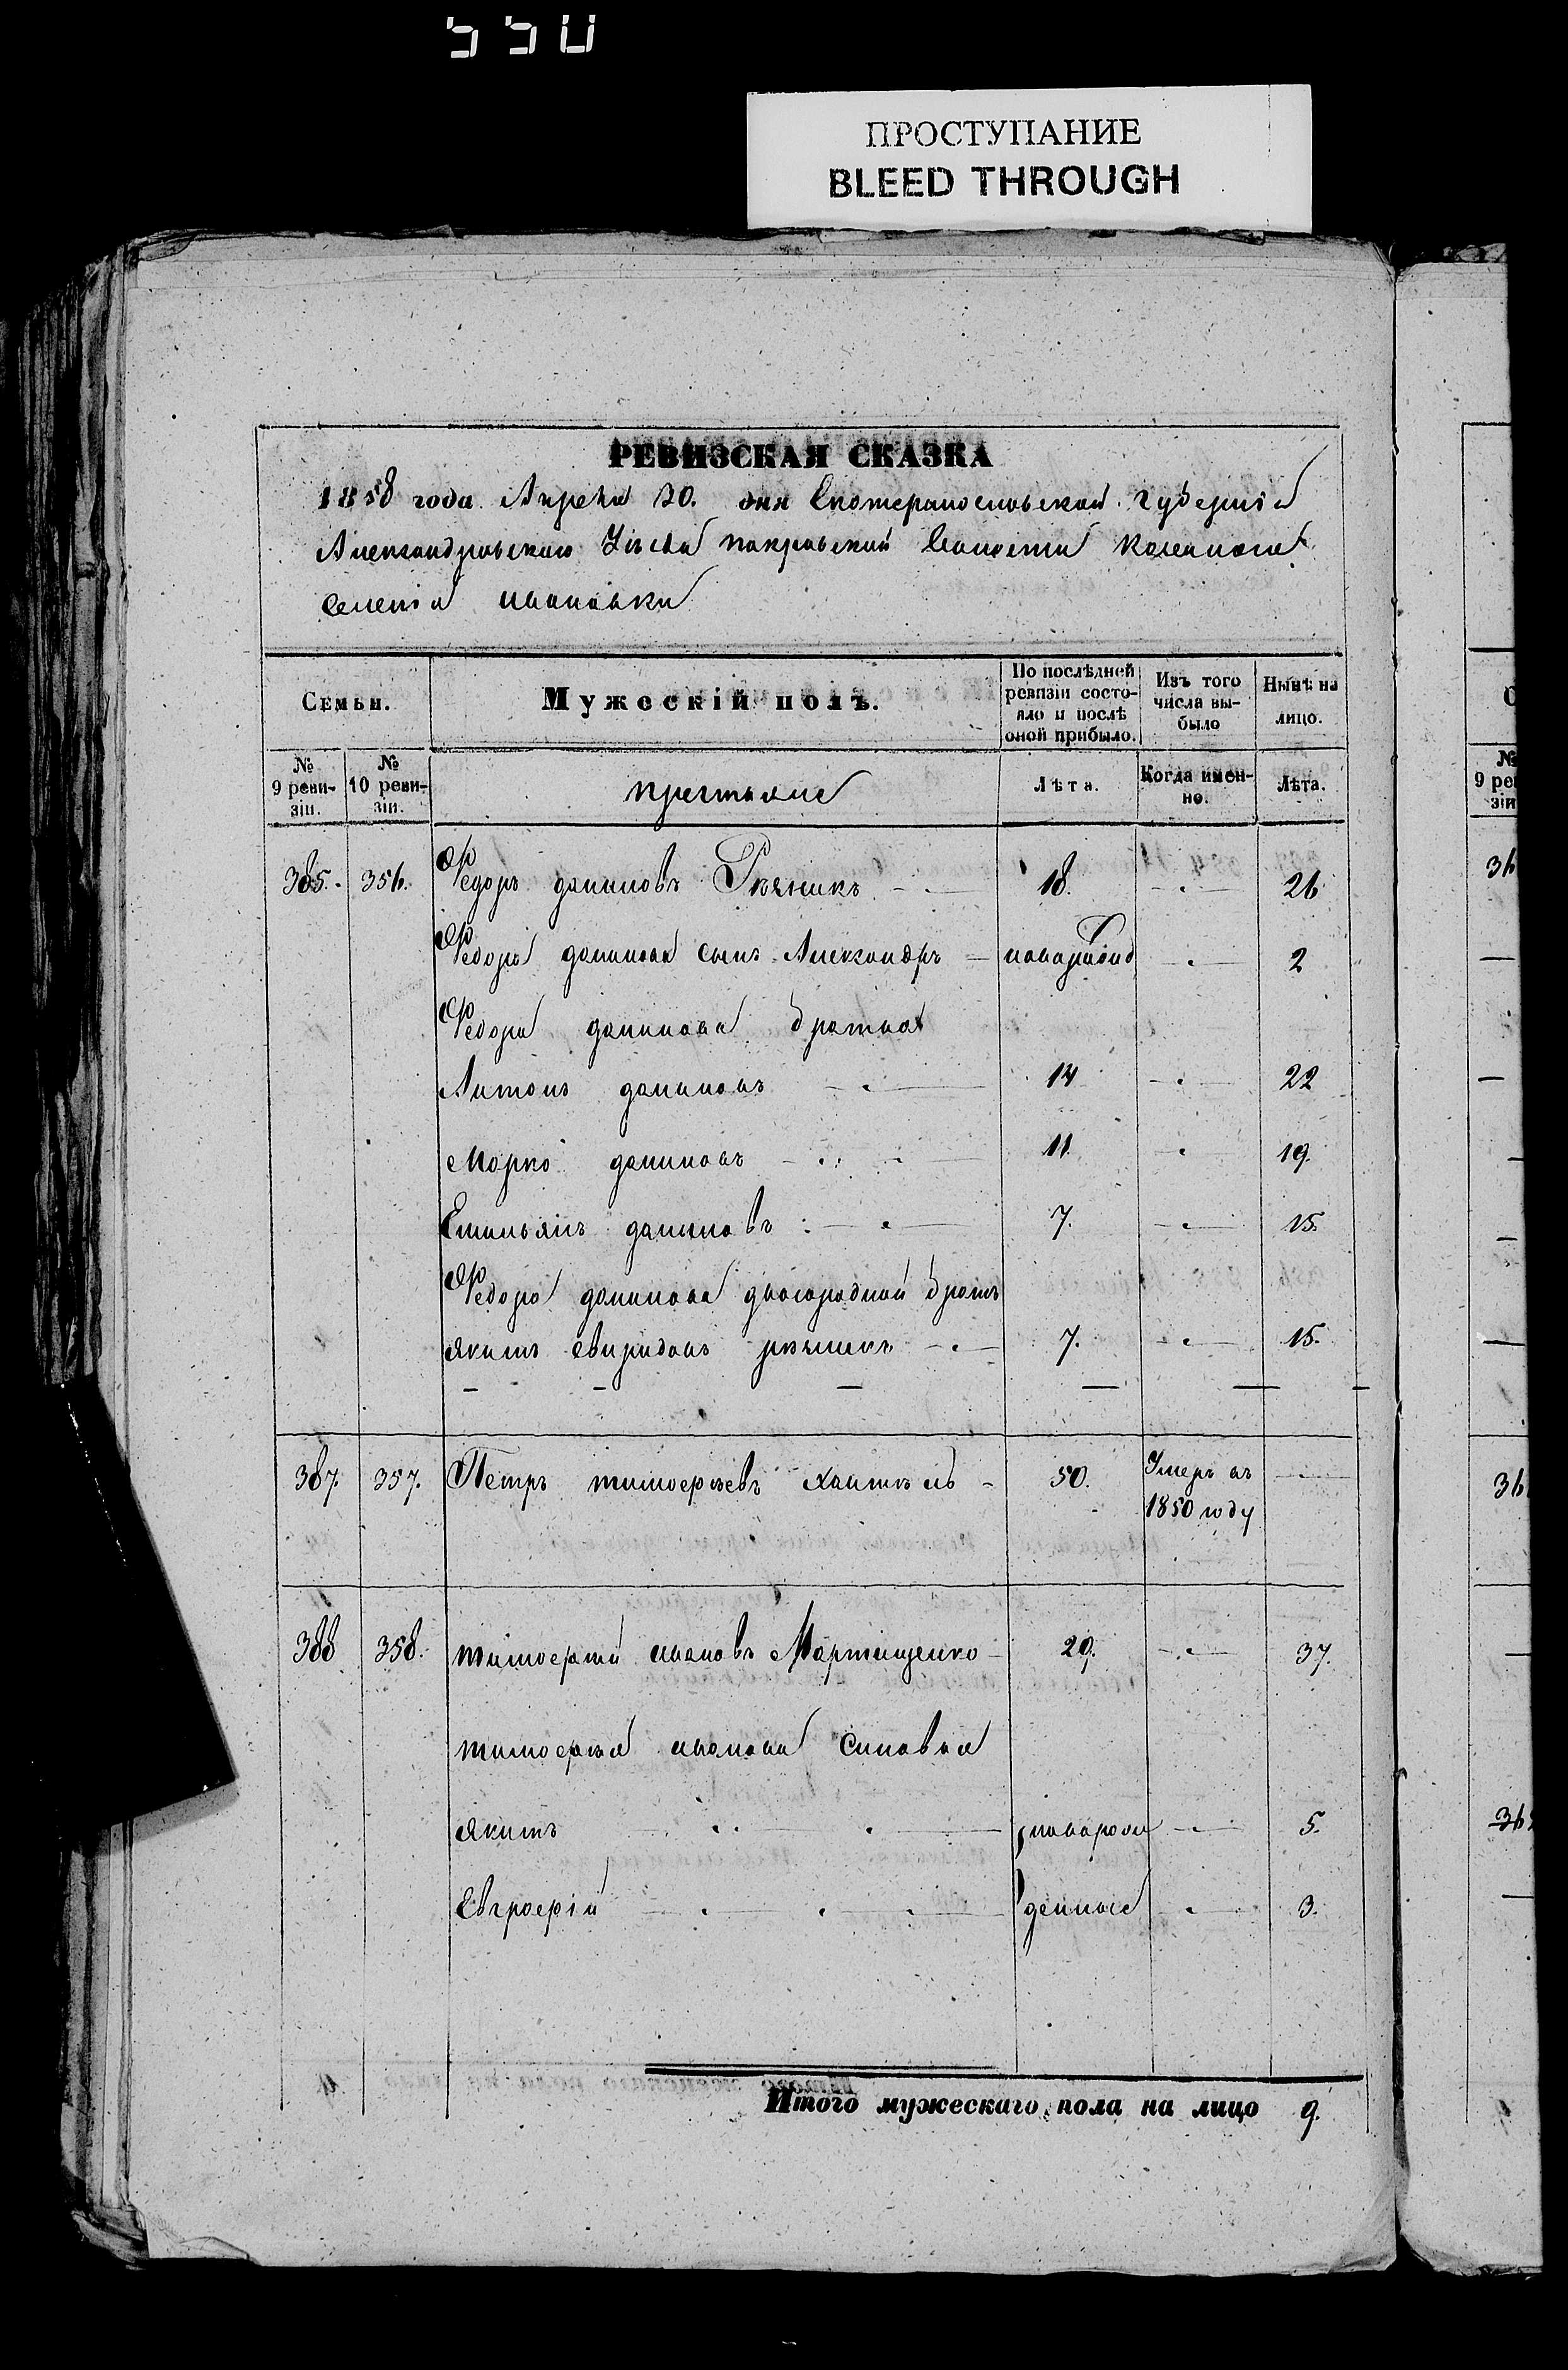 550
ПРОСТУПАНИЕ
BLEED THROUGH
РЕВИЗСКАЯ СКАЗКА
1858 года Апреля 20. дня Екатеринославской Губерніи
Александровскаго Уезда покровской Волости казеннаго
селенія ивановки
Семьи. Мужескій полъ. По послѣдней ревизіи состояло и послѣ оной прибыло. Изъ того числа выбыло Нынѣ на лицо.
№ 9 ревизіи. № 10 ревизіи. крестьяне Лѣта. Когда именно. Лѣта.
385. 356. Федоръ даниловъ Рѣзникъ 18. 26
Федора данилова сынъ Александръ новорожд 2
Федора данилова братья
Антонъ даниловъ 14 22
Марко даниловъ 11 19.
Емельянъ даниловъ 7. 15.
Федора данилова двоюродный братъ
якимъ свиридовъ 7. 15.
387. 357. Петръ тимофеевъ 50. Умеръ въ
1850 году
388 358. тимофей ивановъ Мартыщенко 29. 37.
тимофея иванова сыновья
якимъ новорож 5.
Евграфій денные 3.
Итого мужескаго пола на лицо 9.